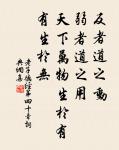 反者道之動
弱者道之用
天下萬物生於有
有生於無
老子道德經第四十章詞